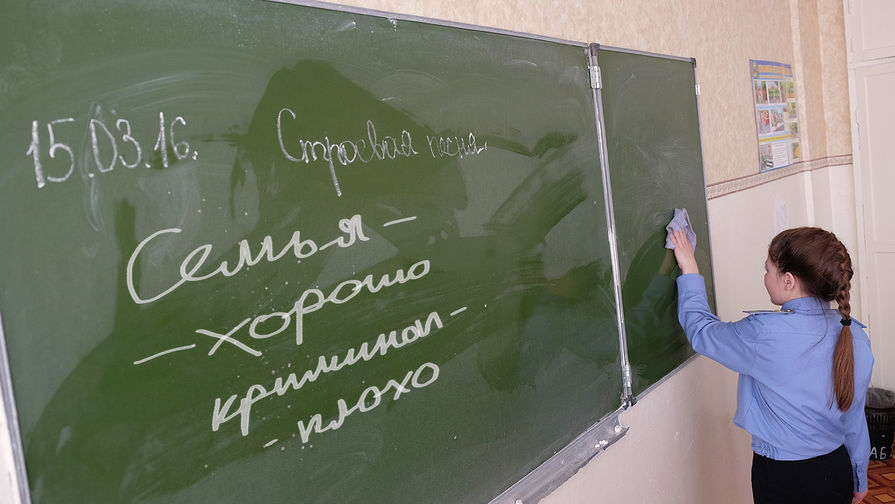 15.03.16. Строевая песня.
Семья -
- хорошо
криминал -
- плохо
АБ